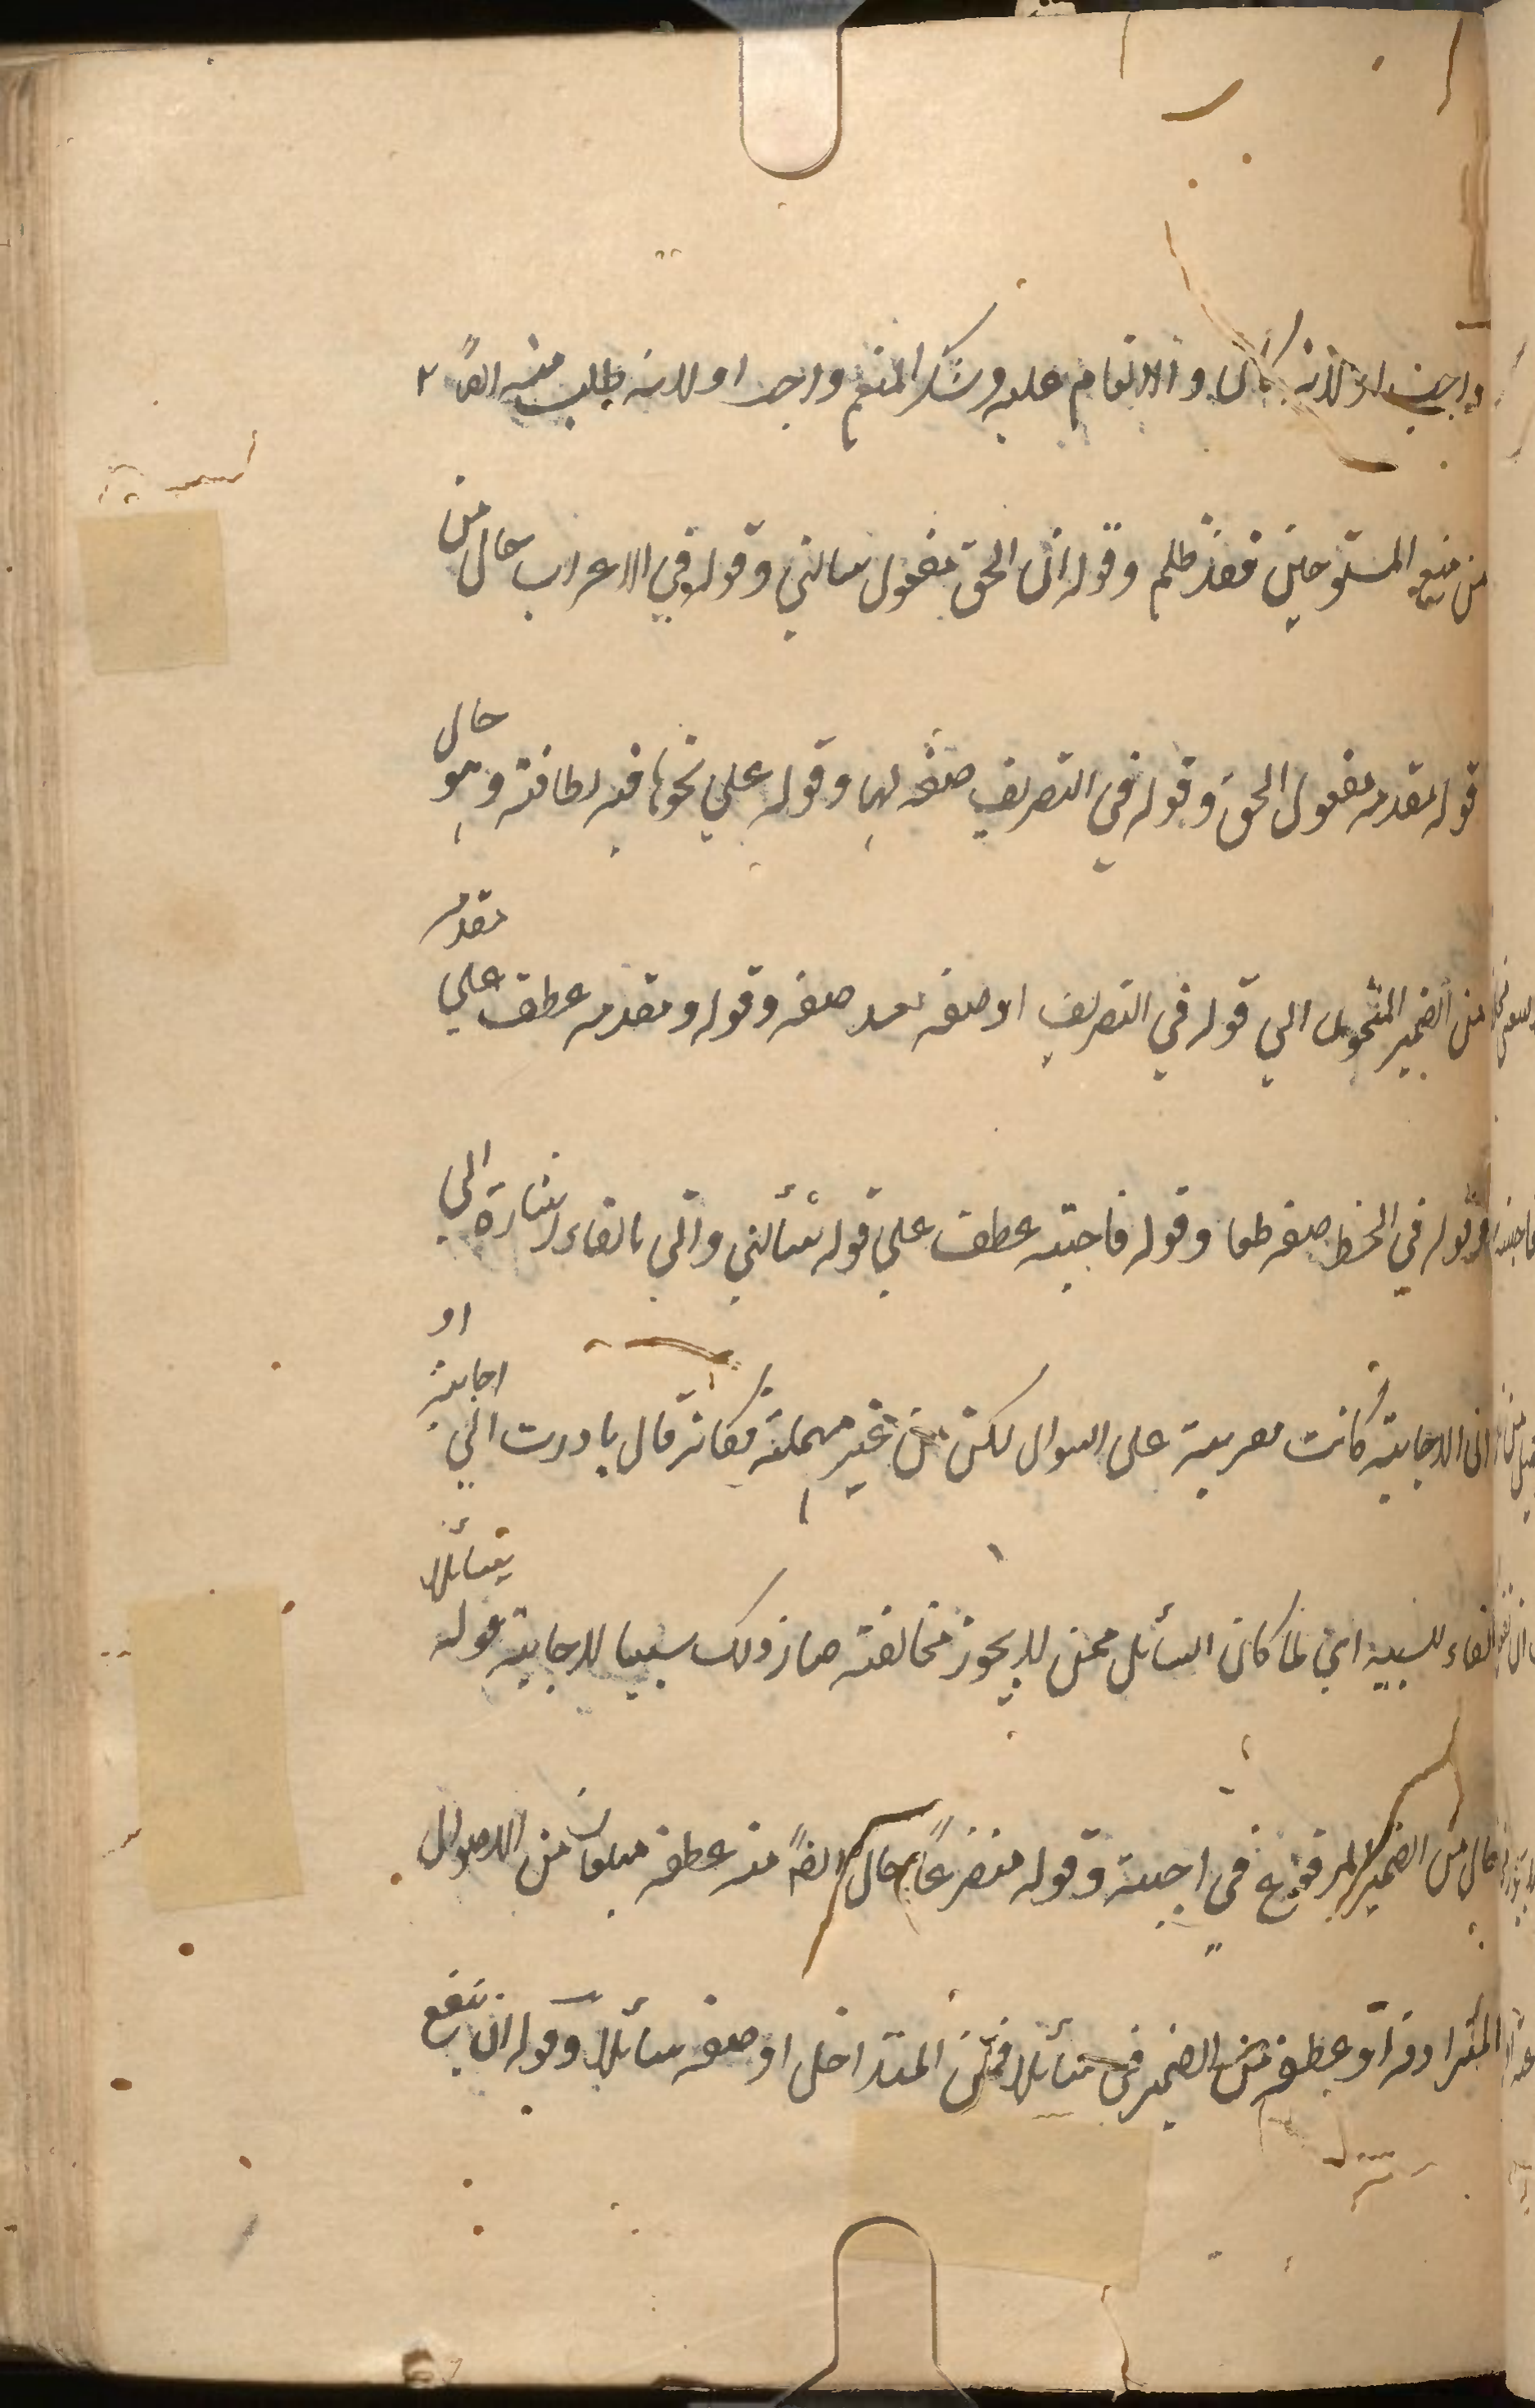 واجب او لانه كان و الانعام عليه وشكر المنعم واجب او لانه طلب منه العا
من منع المستوجبين فقد ظلم وقوله ان الحق مفعول سالني وقوله في الاعراب حال من
قوله مقدمه مفعول الحق وقوله في التصريف صفه لها وقوله علي نحوها فيه لطافته وهو حال
من الضمير المتحول الي قوله في التصريف او صفه بعد صفه وقوله ومقدمه عطف علي مقدمه
وقوله في الخط صفه لها وقوله فاجبته عطف علي قوله سألني واتي بالفاء اشارة الي
ان الاجابة كانت معربة على السوال لكن من غير مهملة فكانه قال بادرت الي اجابته او
الفاء للسببيه اي لما كان السائل ممن لا يجوز مخالفته صار ذلك سببا للاجابة قوله سائلا
حال من الضمير المرفوع في اجبته وقوله متضرعاً حال ايضاً منه عطفه من الاحوال
المترادفة او عطفه من الضمير في سائلا فمن المتداخل او صفه سائلا وقوله ان ينفع